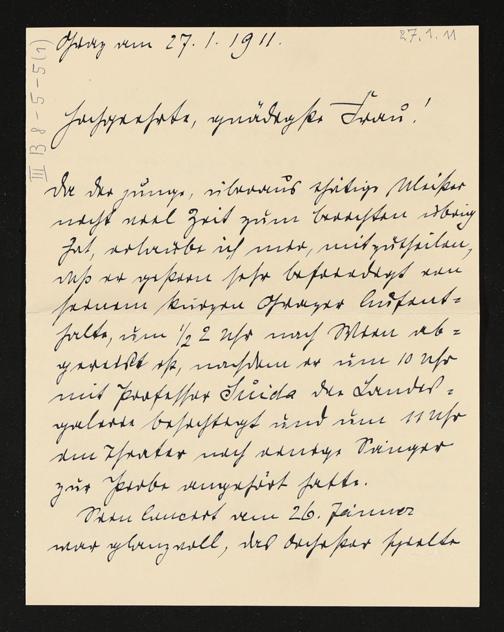 27.1.11
III B 8-5-5(1)
Graz am 27.1.1911.
Hochgeehrte, gnädigste Frau!
Da der junge, überaus thätige Meister
nicht viel Zeit zum berichten übrig
hat, erlaube ich mir, mitzutheilen,
daß er gestern sehr befriedigt von
seinem kurzen Grazer Aufent-
halte, um 1/2 2 Uhr nach Wien ab-
gereist ist, nachdem er um 10 Uhr
mit Professor Suida die Landes-
galerie besichtigt und um 11 Uhr
im Theater noch einige Sänger
zur Probe angehört hatte.
Sein Concert am 26. Jänner
war glanzvoll, das Orchester spielte